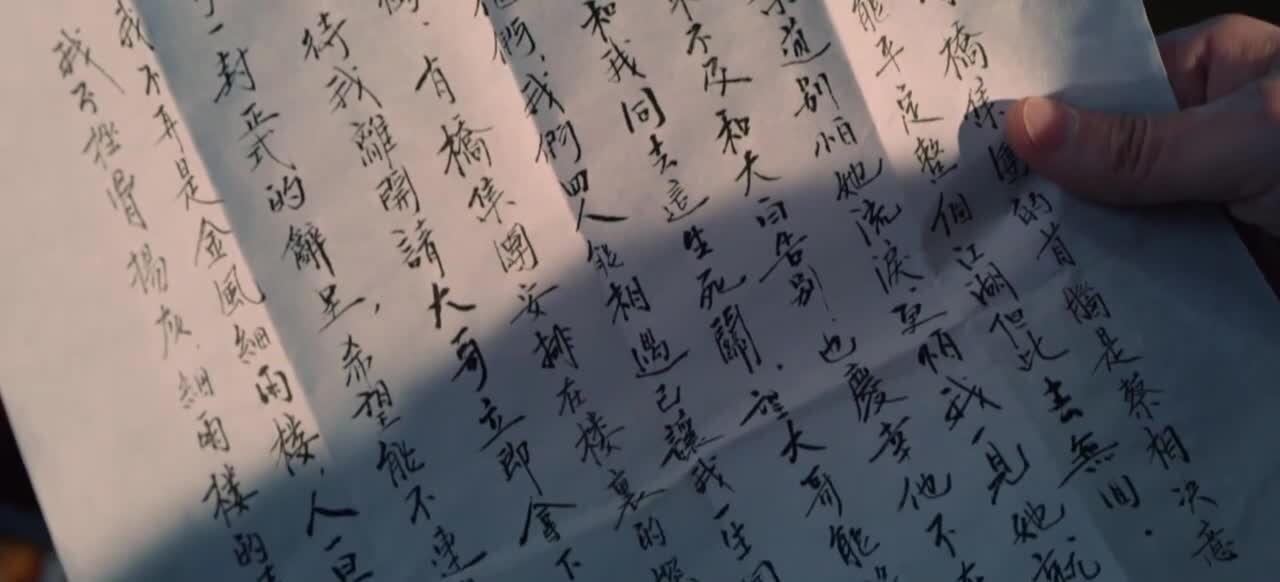 橋集團的首腦是蔡相決意
能平定整個江湖但此去無回.
道別怕她流淚.更怕我一見她就
來不及和大白告別.也慶幸他不
和我同去這生死關.望大哥能
他們,我們四人能相遇已讓我一生
有橋集團安排在楼裏的
待我離開請大哥立即拿下
一封正式的辭呈,希望能不連
我不再是金風細雨楼,人一旦
我挫骨揚灰.細雨楼的